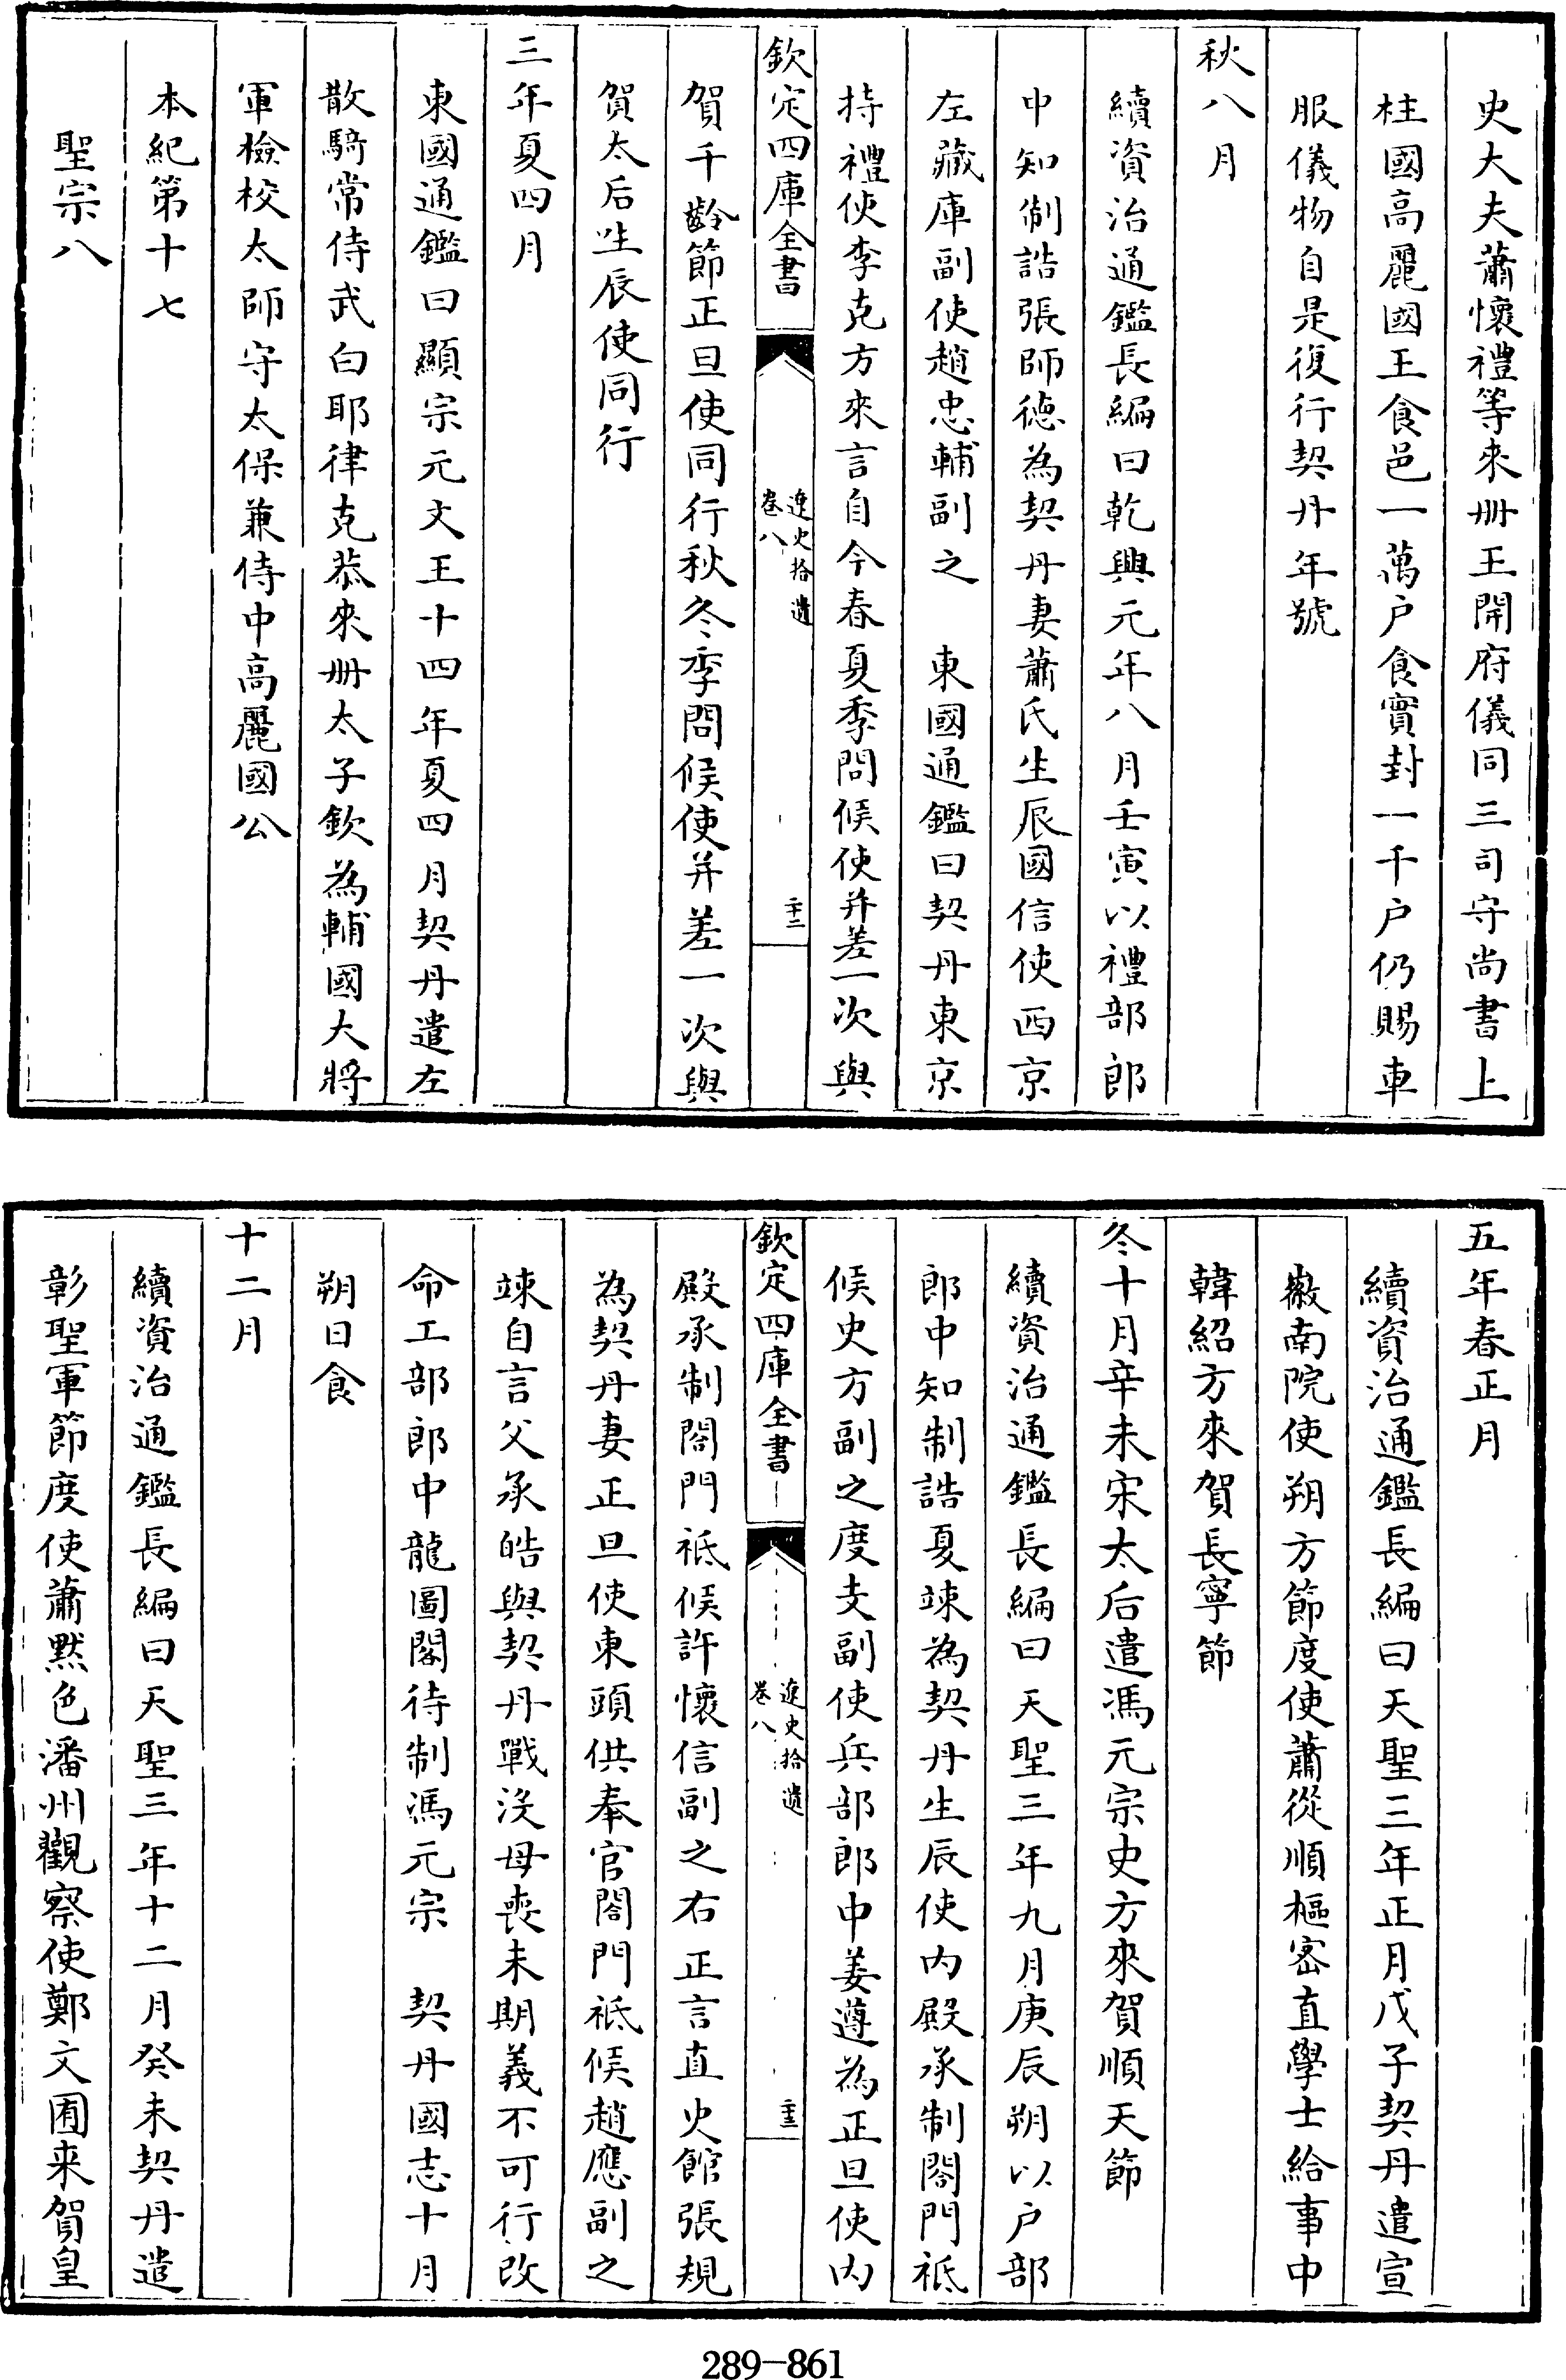 史大夫蕭懷禮等來册王開府儀同三司守尚書上
柱國高麗國王食邑一萬户食實封一千户仍賜車
服儀物自是復行契丹年號
秋八月
續資治通鑑長編曰乾興元年八月壬寅以禮部郎
中知制誥張師德為契丹妻蕭氏生辰國信使西京
左藏庫副使趙忠輔副之　東國通鑑曰契丹東京
持禮使李克方來言自今春夏季問候使并差一次與
欽定四庫全書
遼史拾遺
卷八
二十二
賀千齡節正旦使同行秋冬季問候使并差一次與
賀太后生辰使同行
三年夏四月
東國通鑑曰顯宗元文王十四年夏四月契丹遣左
散騎常侍武白耶律克恭來册太子欽為輔國大將
軍檢校太師守太保兼侍中高麗國公
本紀第十七
聖宗八
五年春正月
續資治通鑑長編曰天聖三年正月戊子契丹遣宣
徽南院使朔方節度使蕭從順樞密直學士給事中
韓紹方來賀長寧節
冬十月辛未宋太后遣馮元宗史方來賀順天節
續資治通鑑長編曰天聖三年九月庚辰朔以户部
郎中知制誥夏竦為契丹生辰使内殿承制閤門祗
候史方副之度支副使兵部郎中姜遵為正旦使内
欽定四庫全書
遼史拾遺
卷八
二十三
殿承制閤門祗候許懷信副之右正言直史館張規
為契丹妻正旦使東頭供奉官閤門祗候趙應副之
竦自言父承皓與契丹戰没母喪未期義不可行改
命工部郎中龍圖閣待制馮元宗　契丹國志十月
朔日食
十二月
續資治通鑑長編曰天聖三年十二月癸未契丹遣
彰聖軍節度使蕭黙色潘州觀察使鄭文囿来賀皇
289-861